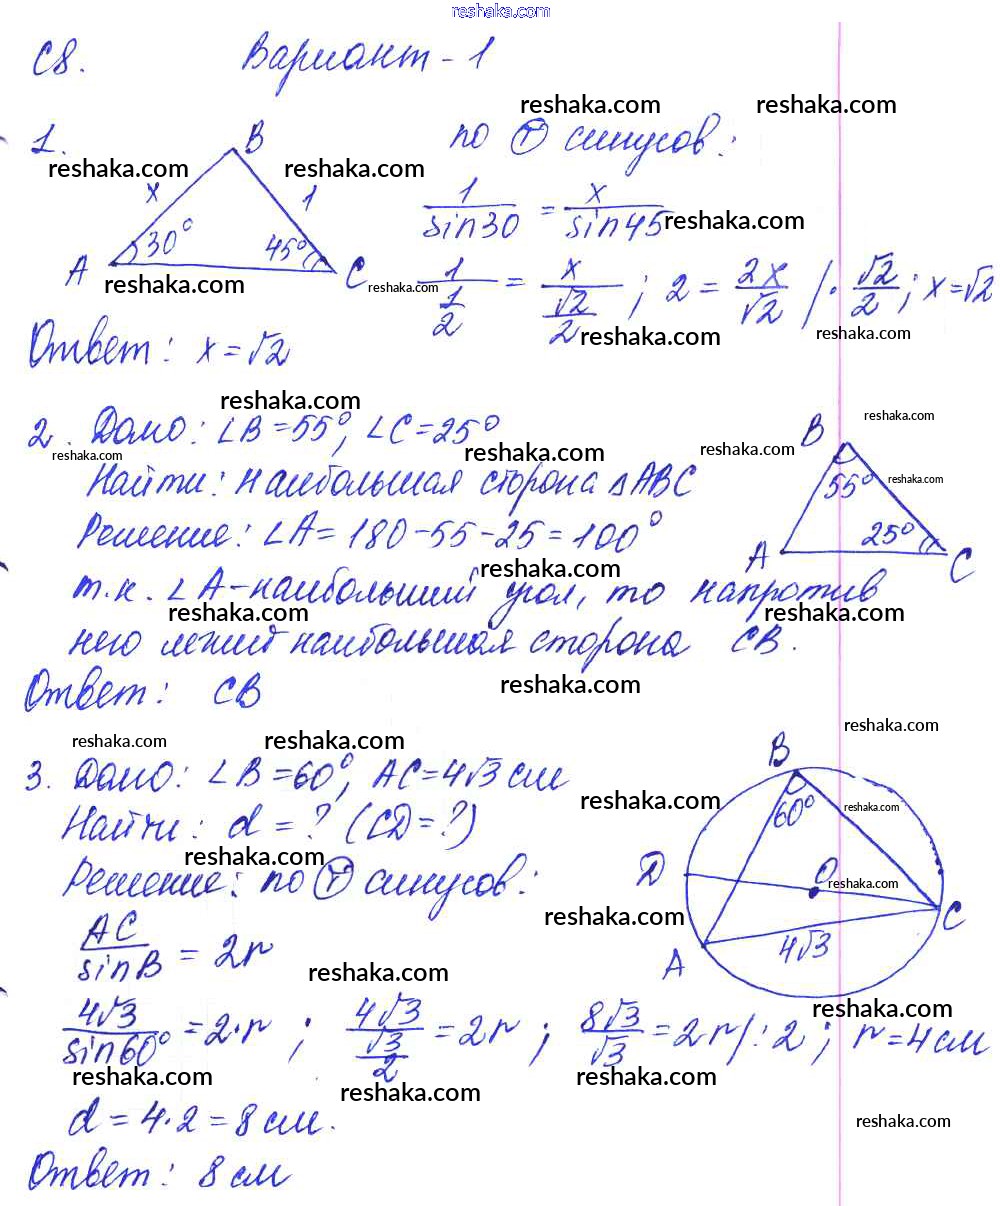 reshaka.com
С8. Вариант - 1
reshaka.com reshaka.com
1. B по Ⓣ синусов:
reshaka.com reshaka.com
x 1
1/sin30 = x/sin45 reshaka.com
30° 45°
A C
reshaka.com reshaka.com
1/(1/2) = x/(√2/2) ; 2 = 2x/√2 /· √2/2 ; x=√2
reshaka.com reshaka.com
Ответ: x = √2
reshaka.com reshaka.com
2. Дано: ∠B=55°, ∠C=25°
reshaka.com reshaka.com reshaka.com
B
Найти: наибольшая сторона ΔABC
reshaka.com
55°
Решение: ∠A = 180-55-25 = 100°
25°
A C
reshaka.com
т.к. ∠A - наибольший угол, то напротив
reshaka.com reshaka.com
него лежит наибольшая сторона CB.
reshaka.com
Ответ: CB
reshaka.com
reshaka.com reshaka.com
3. Дано: ∠B=60°, AC=4√3 см
B
reshaka.com reshaka.com
60°
Найти: d = ? (CD=?)
reshaka.com
Решение: по Ⓣ синусов:
D O reshaka.com
reshaka.com C reshaka.com
AC/sinB = 2r
4√3
A
reshaka.com
reshaka.com
4√3/sin60° = 2·r ; 4√3/(√3/2) = 2r ; 8√3/√3 = 2r /:2 ; r = 4 см
reshaka.com reshaka.com reshaka.com
d = 4·2 = 8 см.
reshaka.com
Ответ: 8 см